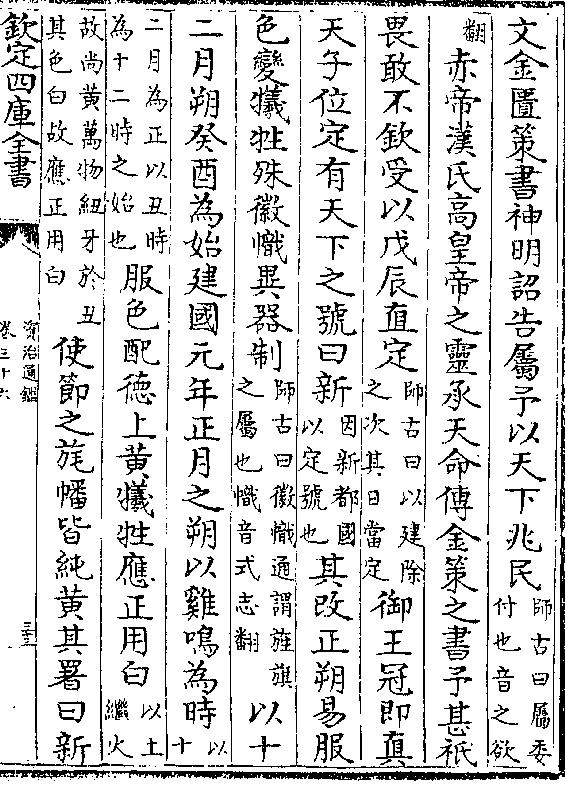 文金匱策書神明詔告屬予以天下兆民師古曰屬委付也音之欲
翻赤帝漢氏高皇帝之靈承天命傳金策之書予甚祇
畏敢不欽受以戊辰直定師古曰以建除之次其日當定御王冠即真
天子位定有天下之號曰新因新都國以定號也其改正朔易服
色變犧牲殊徽幟異器制師古曰徽幟通謂旌旗之屬也幟音式志翻以十
二月朔癸酉為始建國元年正月之朔以雞鳴為時以十
二月為正以丑時為十二時之始也服色配德上黃犧牲應正用白以土繼火
故尚黃萬物紐牙於丑其色白故應正用白使節之旄幡皆純黃其署曰新
欽定四庫全書
資治通鑑
卷三十六